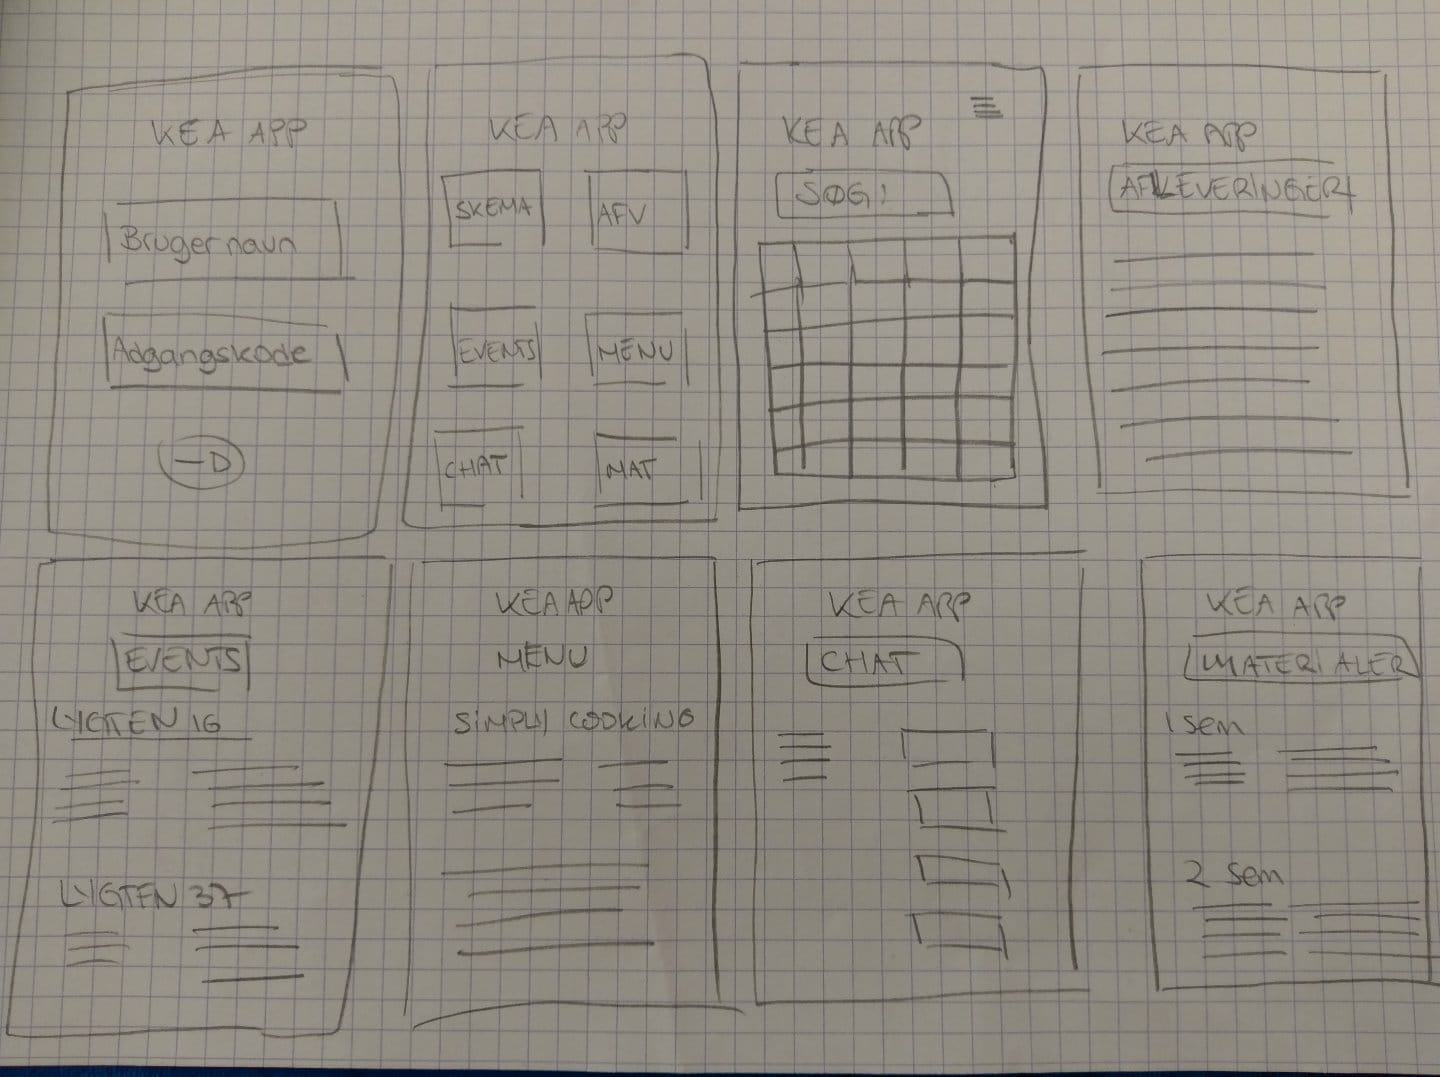 KEA APP
Brugernavn
Adgangskode
KEA APP
SKEMA
AFV
EVENTS
MENU
CHAT
MAT
KEA APP
SØG!
KEA APP
AFLEVERINGER
KEA APP
EVENTS
LYGTEN 16
LYGTEN 37
KEA APP
MENU
SIMPLY COOKING
KEA APP
CHAT
KEA APP
MATERIALER
1 sem
2 sem